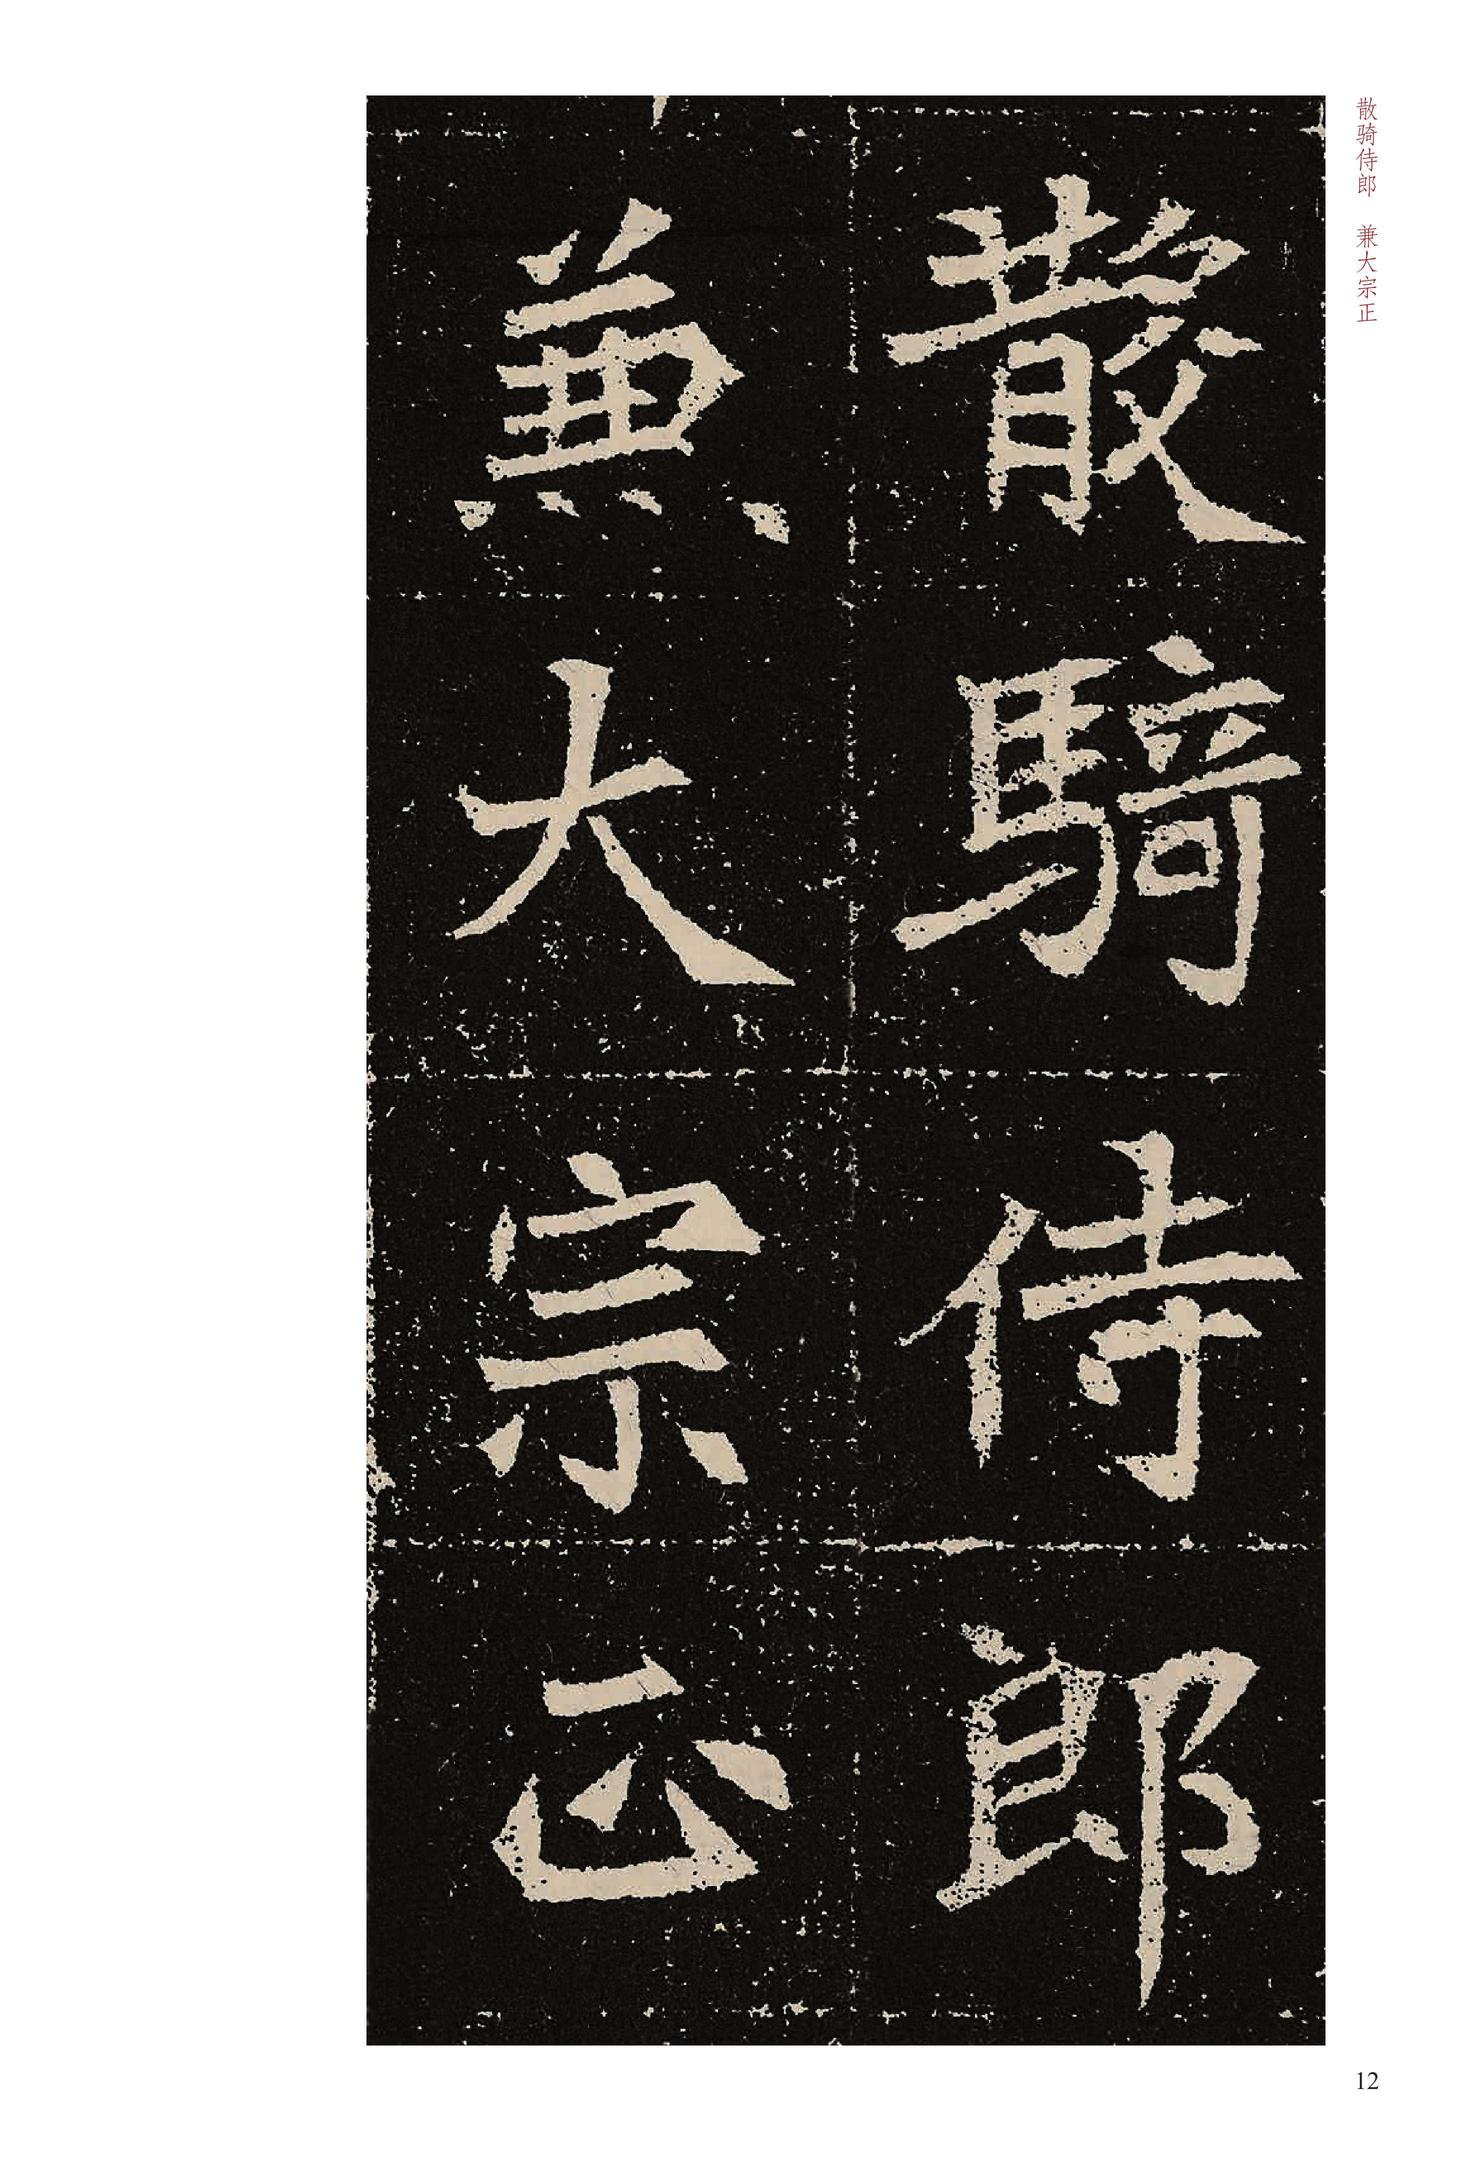 散騎侍郎
兼大宗正
散骑侍郎　兼大宗正
12